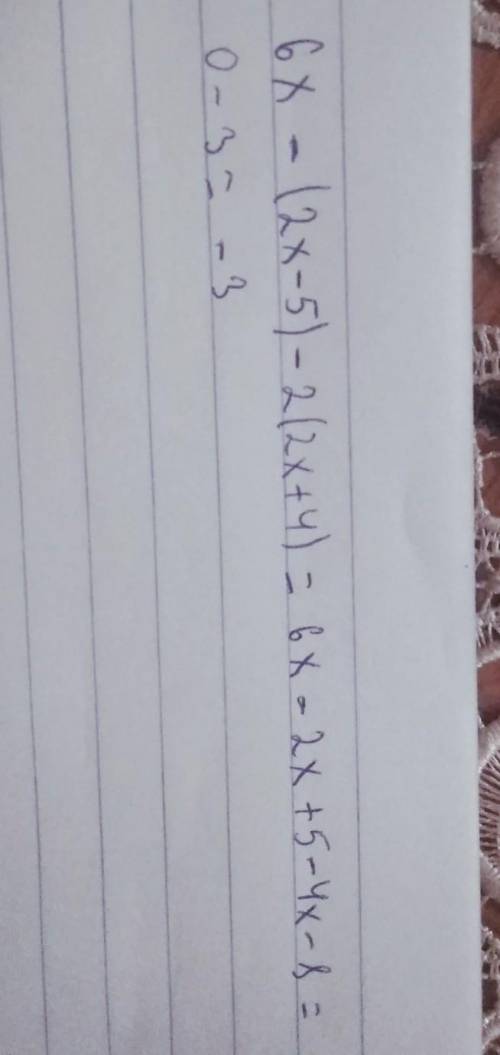 6x - (2x-5) - 2(2x+4) = 6x - 2x + 5 - 4x - 8 =
0 - 3 = -3